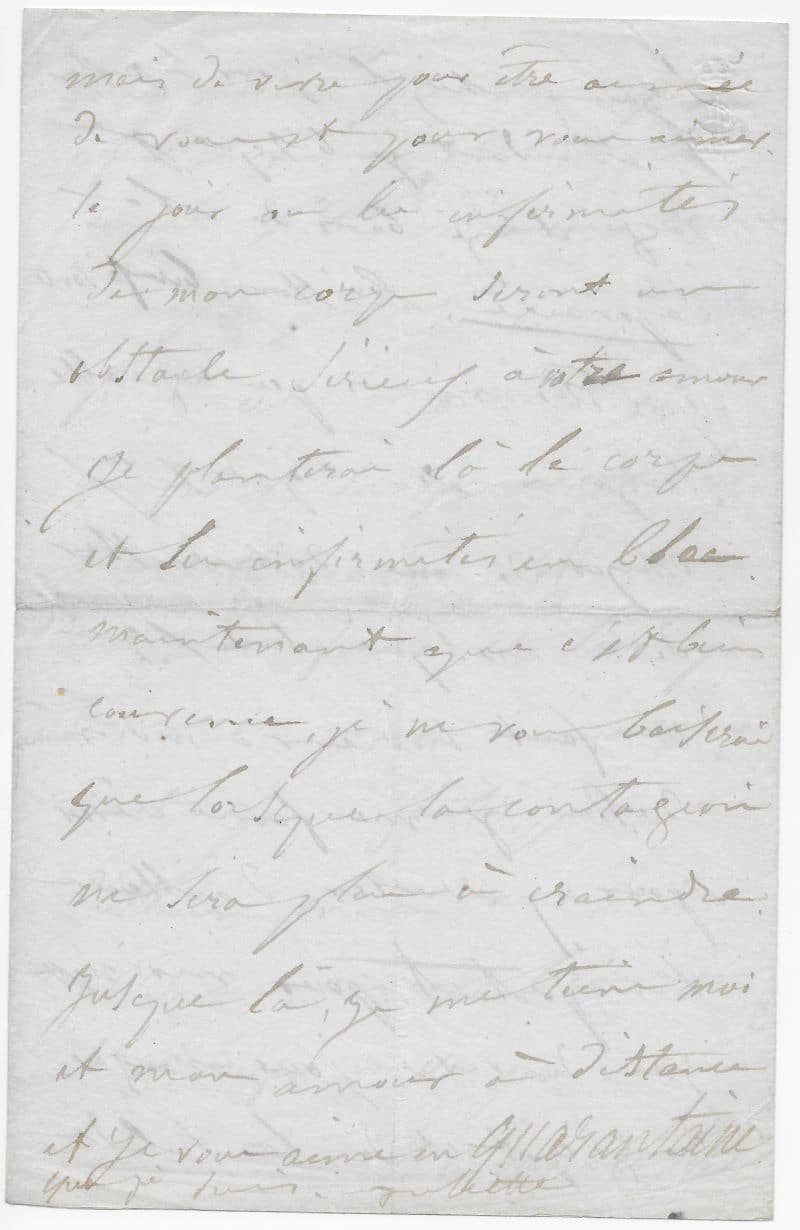 mais de vivre pour être aimée
de vous et pour vous aimer.
le jour où les infirmités
de mon corps seront un
obstacle sérieux à notre amour
je planterai là le corps
et les infirmités en bloc
maintenant que c'est bien
convenu, je ne vous baiserai
que lorsque la contagion
ne sera plus à craindre.
Jusque là, je me tiens moi
et mon amour à distance
et je vous aime en quarantaine
que je suis. Juliette